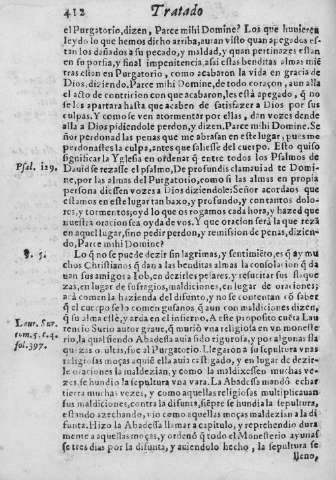 412 Tratado
el Purgatorio, dizen, Parce mihi Domine? Los que huuieren
leydo lo que hemos dicho arriba, auran visto quan apegados es-
tan los dañados a su pecado, y maldad, y quan pertinazes estan
en su porfia, y final impenitencia, assi estas benditas almas mié
tras estan en Purgatorio, como acabaron la vida en gracia de
Dios, diziendo, Parce mihi Domine, de todo coraçon, aun alla
el acto de contricion con que acabaron, les està apegado, q no
se les apartara hasta que acaben de satisfazer a Dios por sus
culpas. Y como se ven atormentar por ellas, dan vozes desde
alla a Dios pidiendole perdon, y dizen, Parce mihi Domine. Se
ñor perdonad las penas que me abrasan en este lugar, pues me
perdonastes la culpa, antes que saliesse del cuerpo. Esto quiso
significar la Yglesia en ordenar q entre todos los Psalmos de
Psal. 129. Dauid se rezasse el psalmo, De profundis clamaui ad te Domi-
ne, por las almas del Purgatorio, como si las almas en propia
persona diessen vozes a Dios diziendole: Señor acordaos que
estamos en este lugar tan baxo, y profundo, y con tantos dolo-
res, y tormentos, oyd lo que os rogamos cada hora, y hazed que
nuestra oracion sea oyda de vos. Y que oracion serà la que rezã
en aquel lugar, sino pedir perdon, y remission de penas, dizien-
do, Parce mihi Domine?
§. 5. Lo q no se puede dezir sin lagrimas, y sentimiẽto, es q ay mu
chos Christianos q dan a las benditas almas la consolation q da
uan sus amigos a Iob, en dezirles pesares, y resucitar sus flaque
zas, en lugar de sufragios, maldiciones, en lugar de oraciones;
arà comen la hazienda del difunto, y no se contentan cõ saber
q el cuerpo se lo comen gusanos, q aun con maldiciones dizen,
q su alma esté, y arda en el infierno. A este proposito cuẽta Lau
Laur. Sur. rencio Surio autor graue, q murio vna religiosa en vn moneste
tom. 5. c. 4. rio, la qual siendo Abadessa auia sido rigurosa, y por algunas fla
fol. 397. quezas o culpas, fue al Purgatorio. Llegaron a su sepultura vnas
religiosas moças a quiẽ ella auia castigado, y en lugar de dezir-
le oraciones la maldezian, y como la maldixessen muchas ve-
zes, se hundio la sepultura vna vara. La Abadessa mandò echar
tierra muchas vezes, y como aquellas religiosas multiplicauan
sus maldiciones, contra la difunta, siẽpre se hundia la sepultura,
estando azechando, vio como aquellas moças maldezian a la di
funta. Hizo la Abadessa llamar a capitulo, y reprehendio dura
mente a aquellas moças, y ordenò q todo el Monesterio ayunas
se tres dias por la difunta, y auiendolo hecho, la sepultura se
lleno,